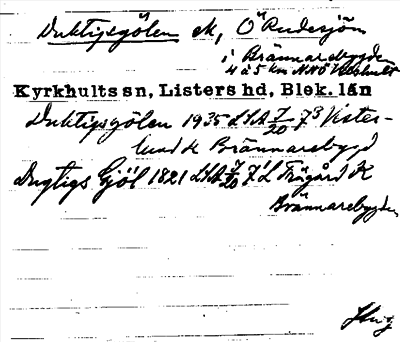 Duktigsgölen sk, Ö Rudesjön
i Brännarebygden
4 à 5 km NNÖ Vilshult
Kyrkhults sn, Listers hd, Blek. län
Duktigsgölen 1935 LSA 7/20 73 Vester-
lund k Brännarebygd
Dugtigs Gjöl 1821 LSA 7/20 71 L Trägård K
Brännarebygden